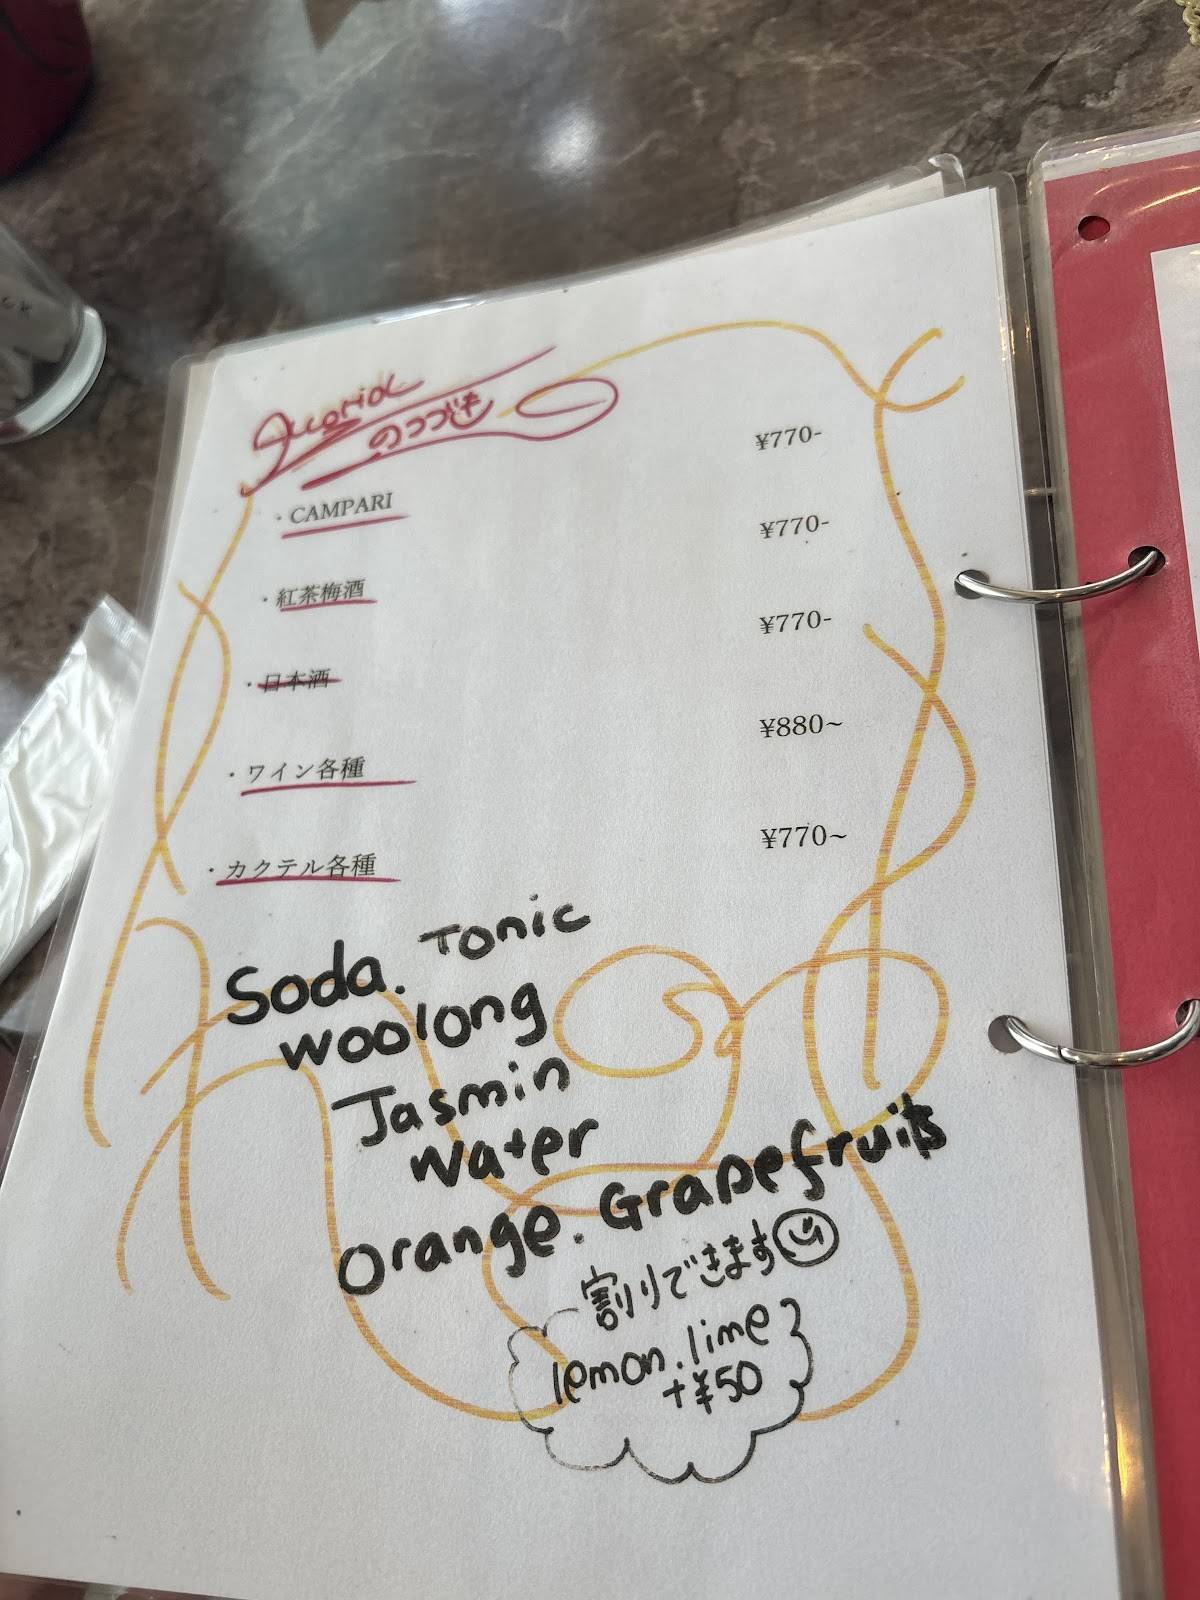 のつづき
・CAMPARI ¥770-
・紅茶梅酒 ¥770-
・日本酒 ¥770-
・ワイン各種 ¥880~
・カクテル各種 ¥770~
Soda. Tonic
woolong
Jasmin
Water
Orange. Grapefruits
割りできます
lemon. lime
+¥50